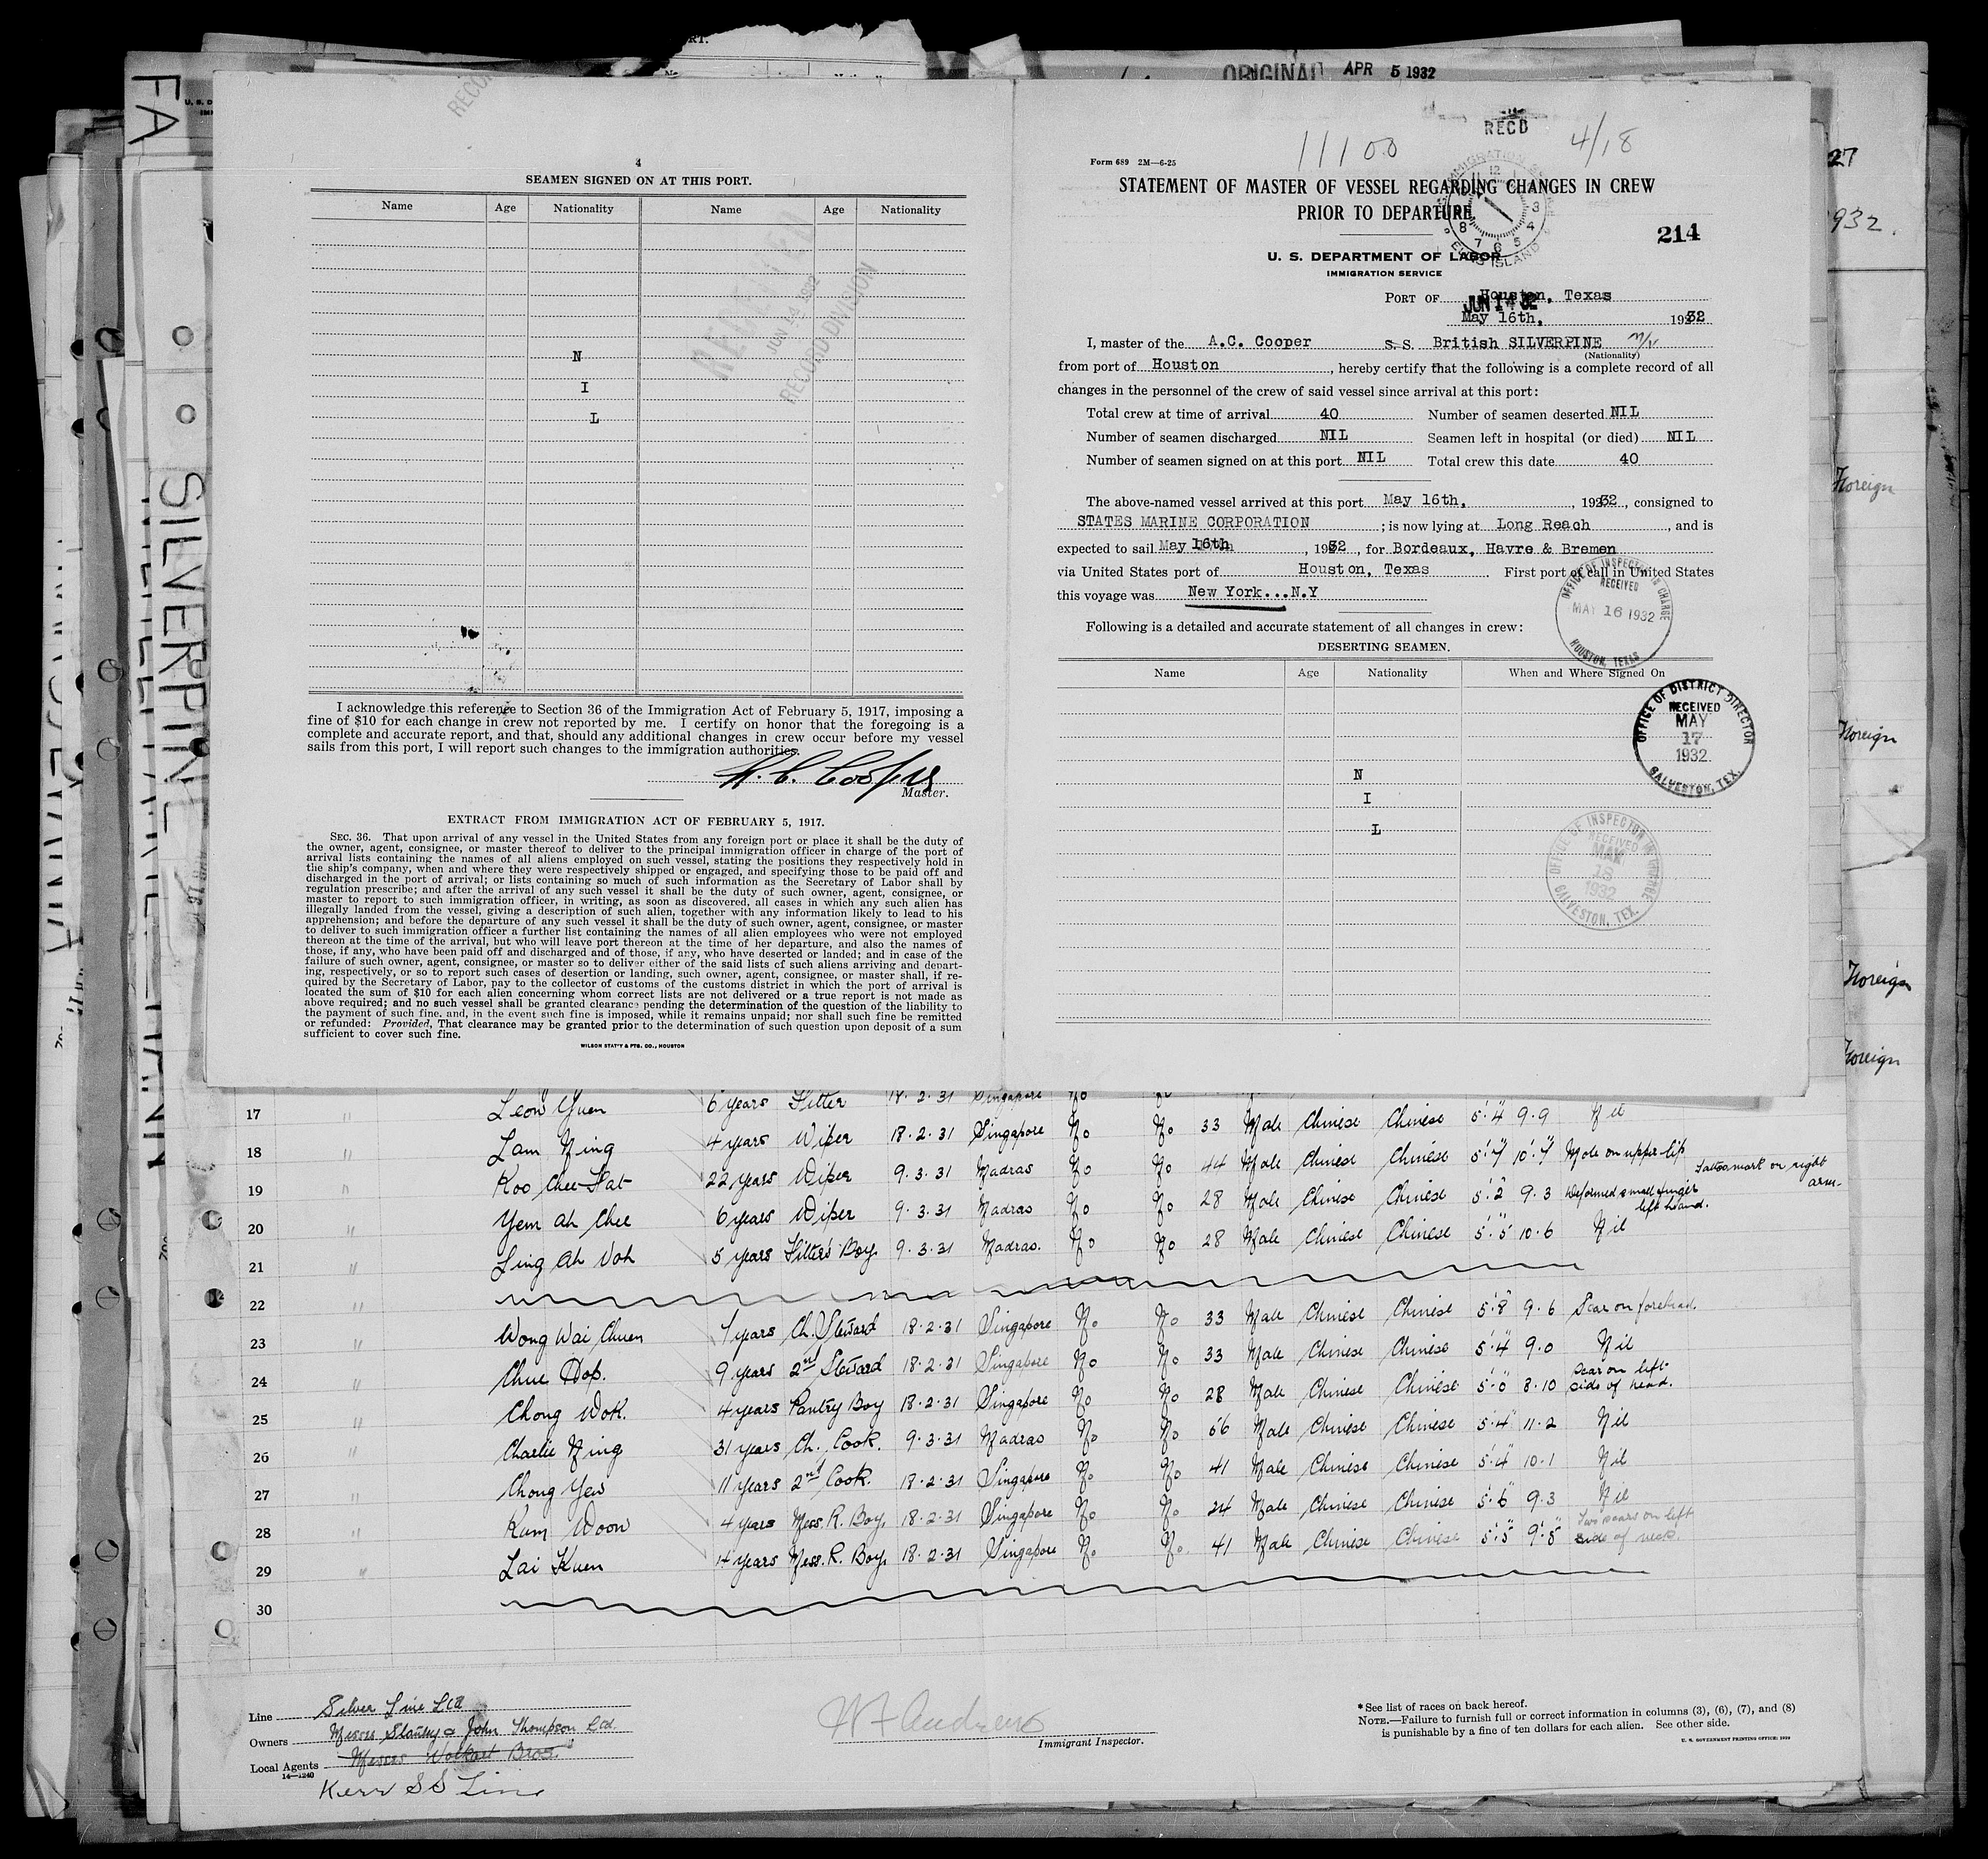 ORIGINAL APR 5 1932
4
SEAMEN SIGNED ON AT THIS PORT.
Name Age Nationality Name Age Nationality
N
I
L
RECEIVED
JUN 1932
RECORD DIVISION
I acknowledge this reference to Section 36 of the Immigration Act of February 5, 1917, imposing a
fine of $10 for each change in crew not reported by me. I certify on honor that the foregoing is a
complete and accurate report, and that, should any additional changes in crew occur before my vessel
sails from this port, I will report such changes to the immigration authorities.
A. C. Cooper
Master.
EXTRACT FROM IMMIGRATION ACT OF FEBRUARY 5, 1917.
SEC. 36. That upon arrival of any vessel in the United States from any foreign port or place it shall be the duty of
the owner, agent, consignee, or master thereof to deliver to the principal immigration officer in charge of the port of
arrival lists containing the names of all aliens employed on such vessel, stating the positions they respectively hold in
the ship's company, when and where they were respectively shipped or engaged, and specifying those to be paid off and
discharged in the port of arrival; or lists containing so much of such information as the Secretary of Labor shall by
regulation prescribe; and after the arrival of any such vessel it shall be the duty of such owner, agent, consignee, or
master to report to such immigration officer, in writing, as soon as discovered, all cases in which any such alien has
illegally landed from the vessel, giving a description of such alien, together with any information likely to lead to his
apprehension; and before the departure of any such vessel it shall be the duty of such owner, agent, consignee, or master
to deliver to such immigration officer a further list containing the names of all alien employees who were not employed
thereon at the time of the arrival, but who will leave port thereon at the time of her departure, and also the names of
those, if any, who have been paid off and discharged and of those, if any, who have deserted or landed; and in case of the
failure of such owner, agent, consignee, or master so to deliver either of the said lists of such aliens arriving and depart-
ing, respectively, or so to report such cases of desertion or landing, such owner, agent, consignee, or master shall, if re-
quired by the Secretary of Labor, pay to the collector of customs of the customs district in which the port of arrival is
located the sum of $10 for each alien concerning whom correct lists are not delivered or a true report is not made as
above required; and no such vessel shall be granted clearance pending the determination of the question of the liability to
the payment of such fine. and, in the event such fine is imposed, while it remains unpaid; nor shall such fine be remitted
or refunded: Provided, That clearance may be granted prior to the determination of such question upon deposit of a sum
sufficient to cover such fine.
WILSON STAT'Y & PTG. CO., HOUSTON
RECD
11100 4/18
Form 689 2M—6-25
STATEMENT OF MASTER OF VESSEL REGARDING CHANGES IN CREW
PRIOR TO DEPARTURE
214
U. S. DEPARTMENT OF LABOR
IMMIGRATION SERVICE
ELLIS ISLAND
PORT OF Houston, Texas
JUN 14 32
May 16th, 1932
I, master of the A.C. Cooper S. S. British SILVERPINE M/V
(Nationality)
from port of Houston, hereby certify that the following is a complete record of all
changes in the personnel of the crew of said vessel since arrival at this port:
Total crew at time of arrival 40 Number of seamen deserted NIL
Number of seamen discharged NIL Seamen left in hospital (or died) NIL
Number of seamen signed on at this port NIL Total crew this date 40
The above-named vessel arrived at this port May 16th, 1932, consigned to
STATES MARINE CORPORATION; is now lying at Long Reach, and is
expected to sail May 16th, 1932, for Bordeaux, Havre & Bremen
via United States port of Houston, Texas. First port of call in United States
this voyage was New York...N.Y
Following is a detailed and accurate statement of all changes in crew:
OFFICE OF INSPECTOR IN CHARGE
RECEIVED
MAY 16 1932
HOUSTON, TEXAS
DESERTING SEAMEN.
Name Age Nationality When and Where Signed On
N
I
L
OFFICE OF DISTRICT DIRECTOR
RECEIVED
MAY
17
1932
GALVESTON, TEX.
OFFICE OF INSPECTOR IN CHARGE
RECEIVED
MAY
1932
GALVESTON, TEX.
SILVERPINE
27
932.
Foreign
Foreign
Foreign
Foreign
17 " Leon Yuen 6 years Fitter 18.2.31 Singapore No No 33 Male Chinese Chinese 5'.4" 9.9 Nil
18 " Lam Ning 4 years Wiper 18.2.31 Singapore No No 44 Male Chinese Chinese 5'.7" 10'.7" Mole on upper lip
19 " Koo Chee Fat 22 years Wiper 9.3.31 Madras No No 28 Male Chinese Chinese 5'.2" 9.3 Deformed small finger left hand. Tattoomark on right arm.
20 " Yem Ah Chee 6 years Wiper 9.3.31 Madras No No 28 Male Chinese Chinese 5'.5" 10.6 Nil
21 " Ling Ah Voh 5 years Fitter's Boy. 9.3.31 Madras. No
22 "
23 " Wong Wai Chuen 7 years Ch. Steward 18.2.31 Singapore No No 33 Male Chinese Chinese 5'.8" 9.6 Scar on forehead.
24 " Chue Hop. 9 years 2nd Steward 18.2.31 Singapore No No 33 Male Chinese Chinese 5'.4" 9.0 Nil
25 " Chong Wok. 4 years Pantry Boy 18.2.31 Singapore No No 28 Male Chinese Chinese 5'.0" 8.10 Scar on left side of head.
26 " Charlie Ning 31 years Ch. Cook. 9.3.31 Madras No No 56 Male Chinese Chinese 5'.4" 11.2 Nil
27 " Chong Yew 11 years 2nd Cook. 18.2.31 Singapore No No 41 Male Chinese Chinese 5'.4" 10.1 Nil
28 " Kum Woon 4 years Mess. R. Boy. 18.2.31 Singapore No No 24 Male Chinese Chinese 5'.6" 9.3 Nil
29 " Lai Kuen 14 years Mess. R. Boy. 18.2.31 Singapore No No. 41 Male Chinese Chinese 5'.5" 9'.8" Two scars on left side of neck.
30
Line Silver Line Ltd
Owners Messrs Stanley & John Thompson Ltd.
Local Agents Messrs Volkart Bros.
14—1240
Kerr SS Line
W F Andrews
Immigrant Inspector.
* See list of races on back hereof.
NOTE.—Failure to furnish full or correct information in columns (3), (6), (7), and (8)
is punishable by a fine of ten dollars for each alien. See other side.
U. S. GOVERNMENT PRINTING OFFICE: 1929